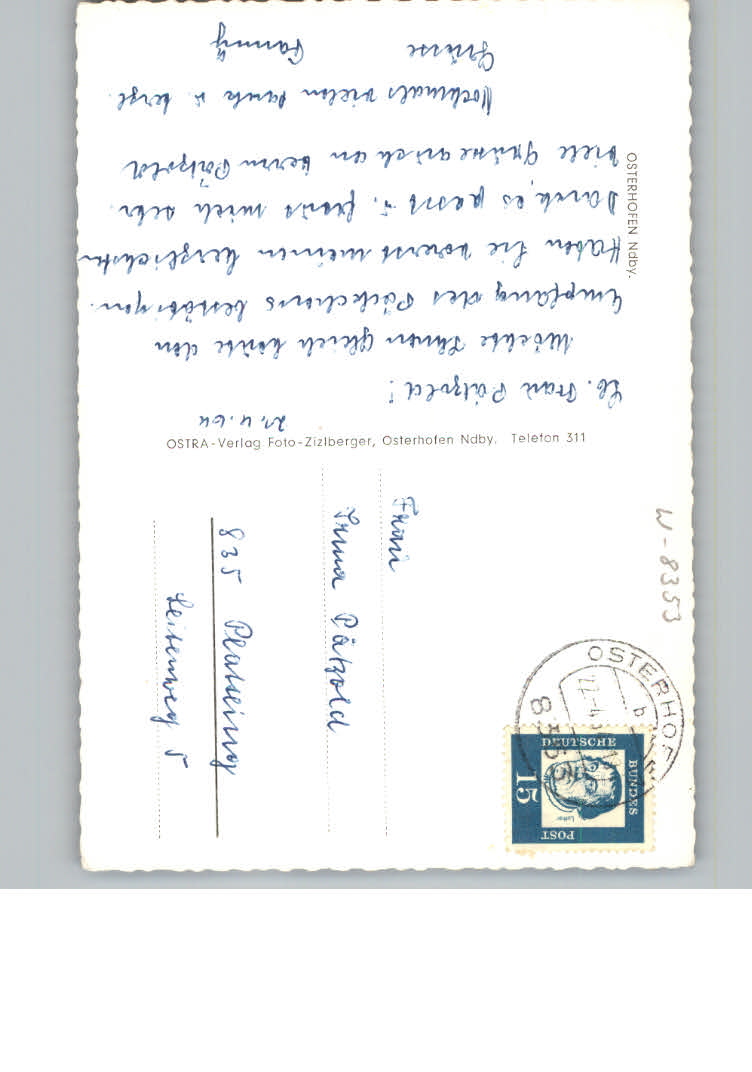 21.4.64
Lb. Frau Pätzold!
Möchte Ihnen gleich heute den
Empfang des Päckchens bestätigen.
Haben Sie vorerst meinen herzlichsten
Dank, es passt u. freut mich sehr.
Viele Grüsse auch an Herrn Pätzold
Nochmals vielen Dank u. herzl.
Grüsse Fanny
OSTERHOFEN Ndby.
OSTRA-Verlag Foto-Zizlberger, Osterhofen Ndby. Telefon 311
Frau
Irma Pätzold
835 Plattling
Leitenweg 5
W-8353
OSTERHOFEN
22.-4
b
8353
DEUTSCHE
BUNDES
POST
15
Luther